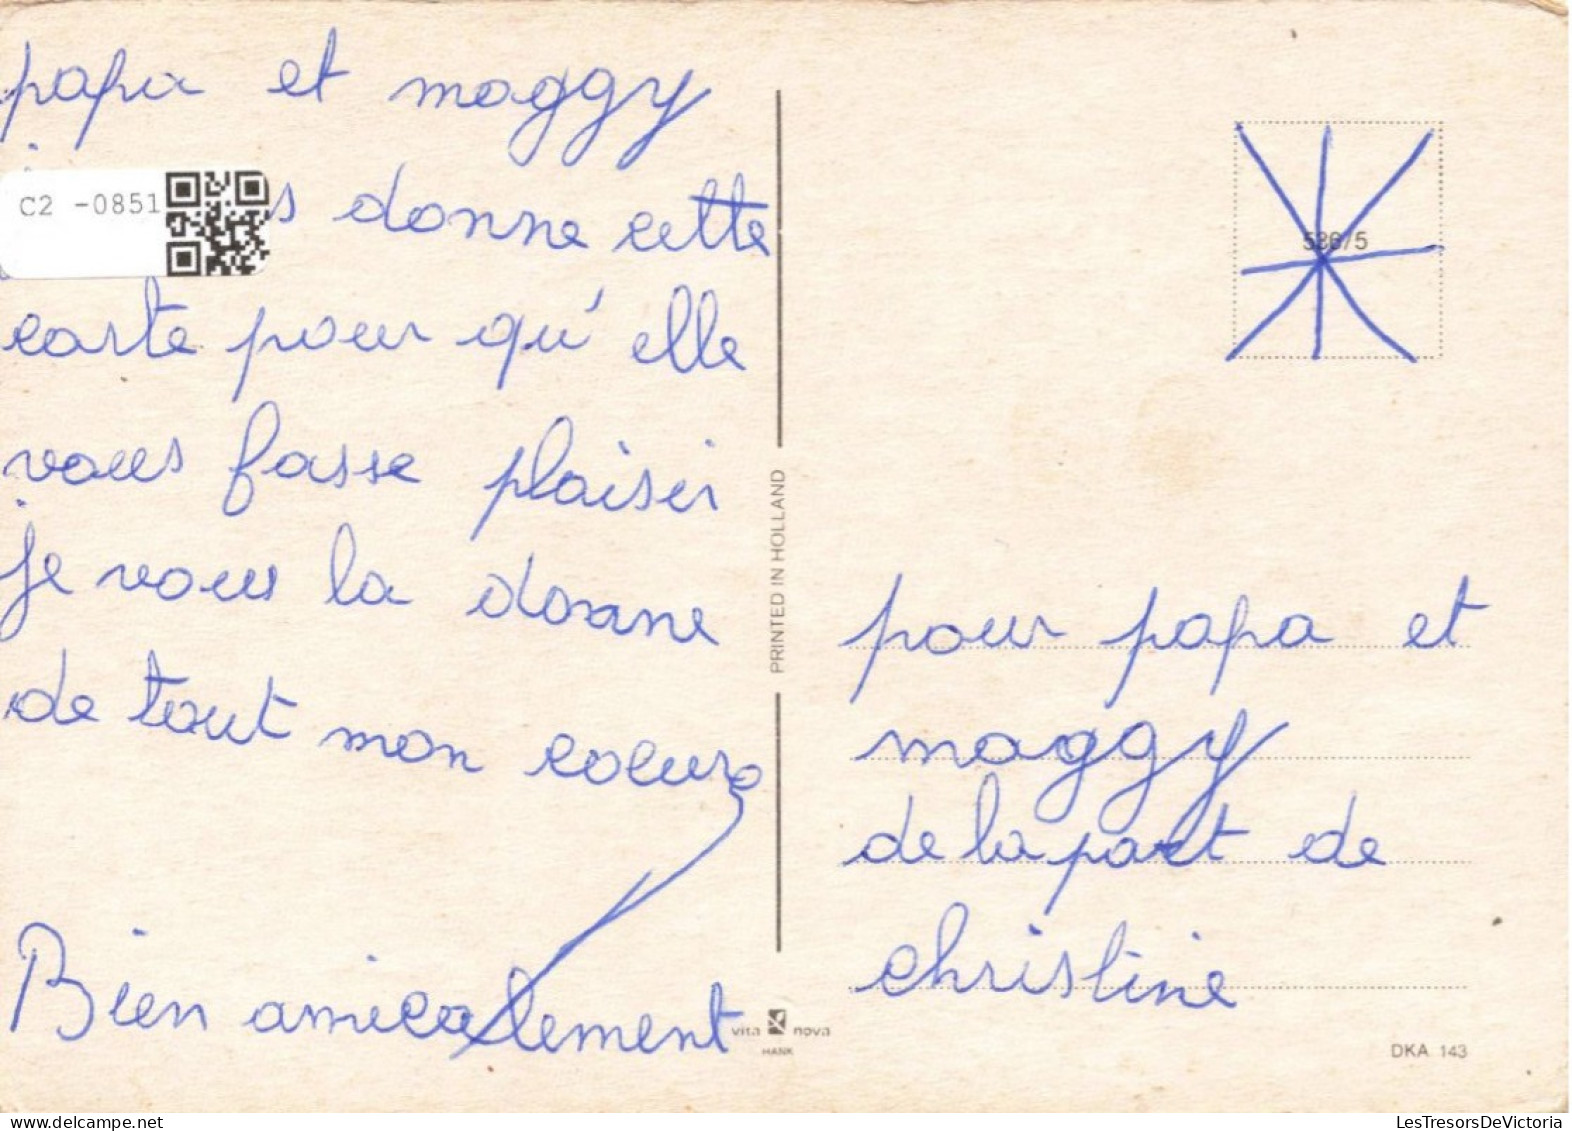 papa et maggy
C2 -0851
s donne cette
carte pour qu'elle
vous fasse plaisir
je vous la donne
de tout mon coeur
Bien amicalement
PRINTED IN HOLLAND
vita nova
HANK
586/5
pour papa et
maggy
de la part de
christine
DKA 143
LesTresorsDeVictoria